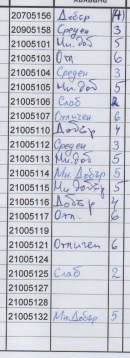 20705156 Добър (4)
20905158 Среден 3
21005101 Мн.доб 5
21005103 Отл 6
21005104 Среден 3
21005105 Мн.доб 5
21005106 Слаб 2
21005107 Отличен 6
21005110 Добър 4
21005112 Среден 3
21005113 Мн.доб 5
21005114 Мн.Добър 5
21005115 Мн.добър 5
21005116 Добър 4
21005117 Отл. 6
21005119
21005121 Отличен 6
21005124
21005125 Слаб 2
21005127
21005128
21005132 Мн.Добър 5